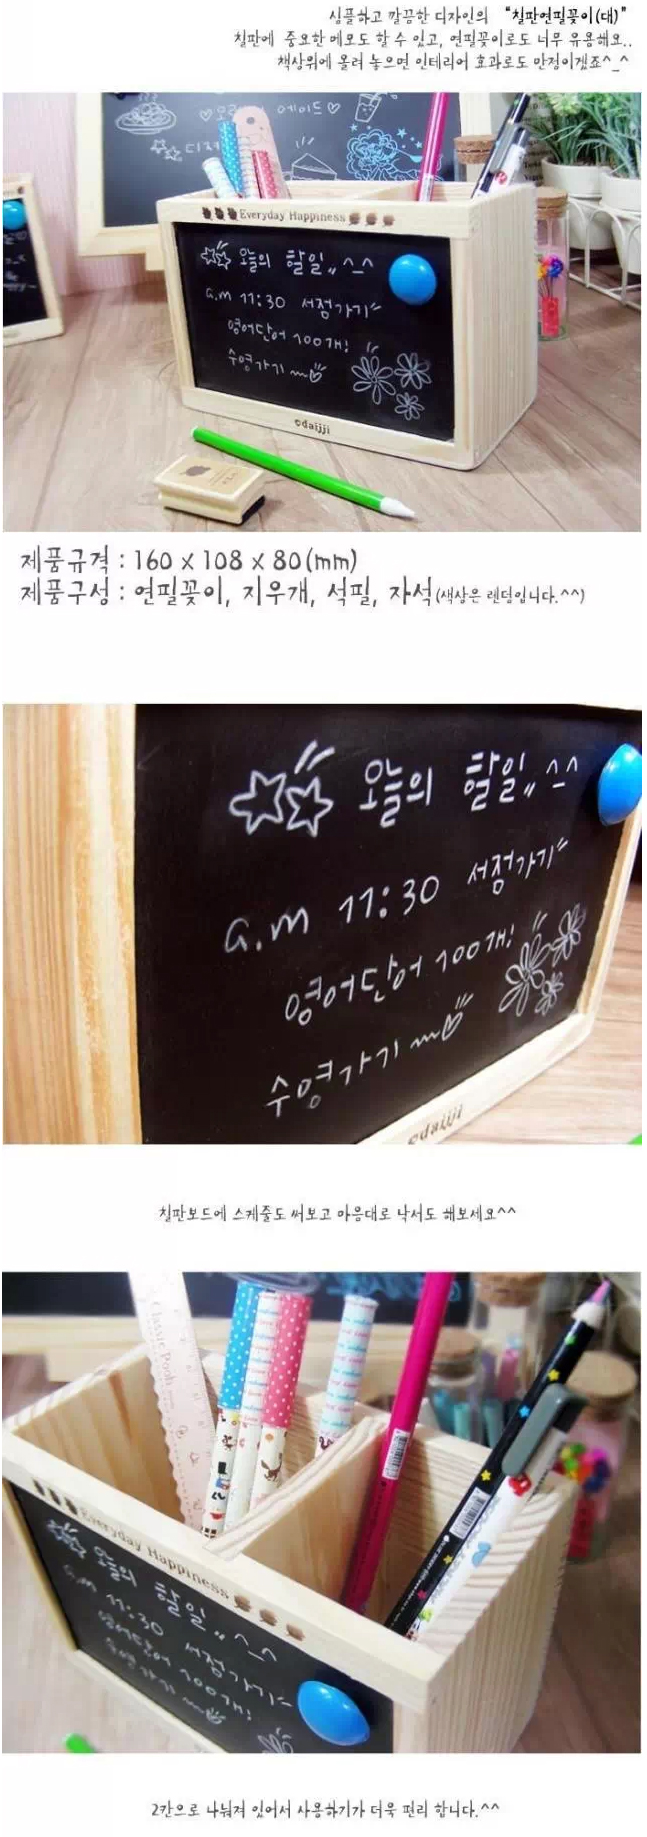 심플하고 깔끔한 디자인의 "칠판연필꽂이(대)"
칠판에 중요한 메모도 할 수 있고, 연필꽂이로도 너무 유용해요..
책상위에 올려 놓으면 인테리어 효과로도 만점이겠죠^_^
Everyday Happiness
오늘의 할일,, ^-^
a.m 11:30 서점가기
영어단어 100개!
수영가기
©daijji
제품규격 : 160 x 108 x 80(mm)
제품구성 : 연필꽂이, 지우개, 석필, 자석(색상은 렌덤입니다.^^)
오늘의 할일,, ^-^
a.m 11:30 서점가기
영어단어 100개!
수영가기
©daijji
칠판보드에 스케줄도 써보고 마음대로 낙서도 해보세요^^
Everyday Happiness
오늘의 할일,, ^-^
a.m 11:30 서점가기
영어단어 100개!
수영가기
2칸으로 나눠져 있어서 사용하기가 더욱 편리 합니다.^^